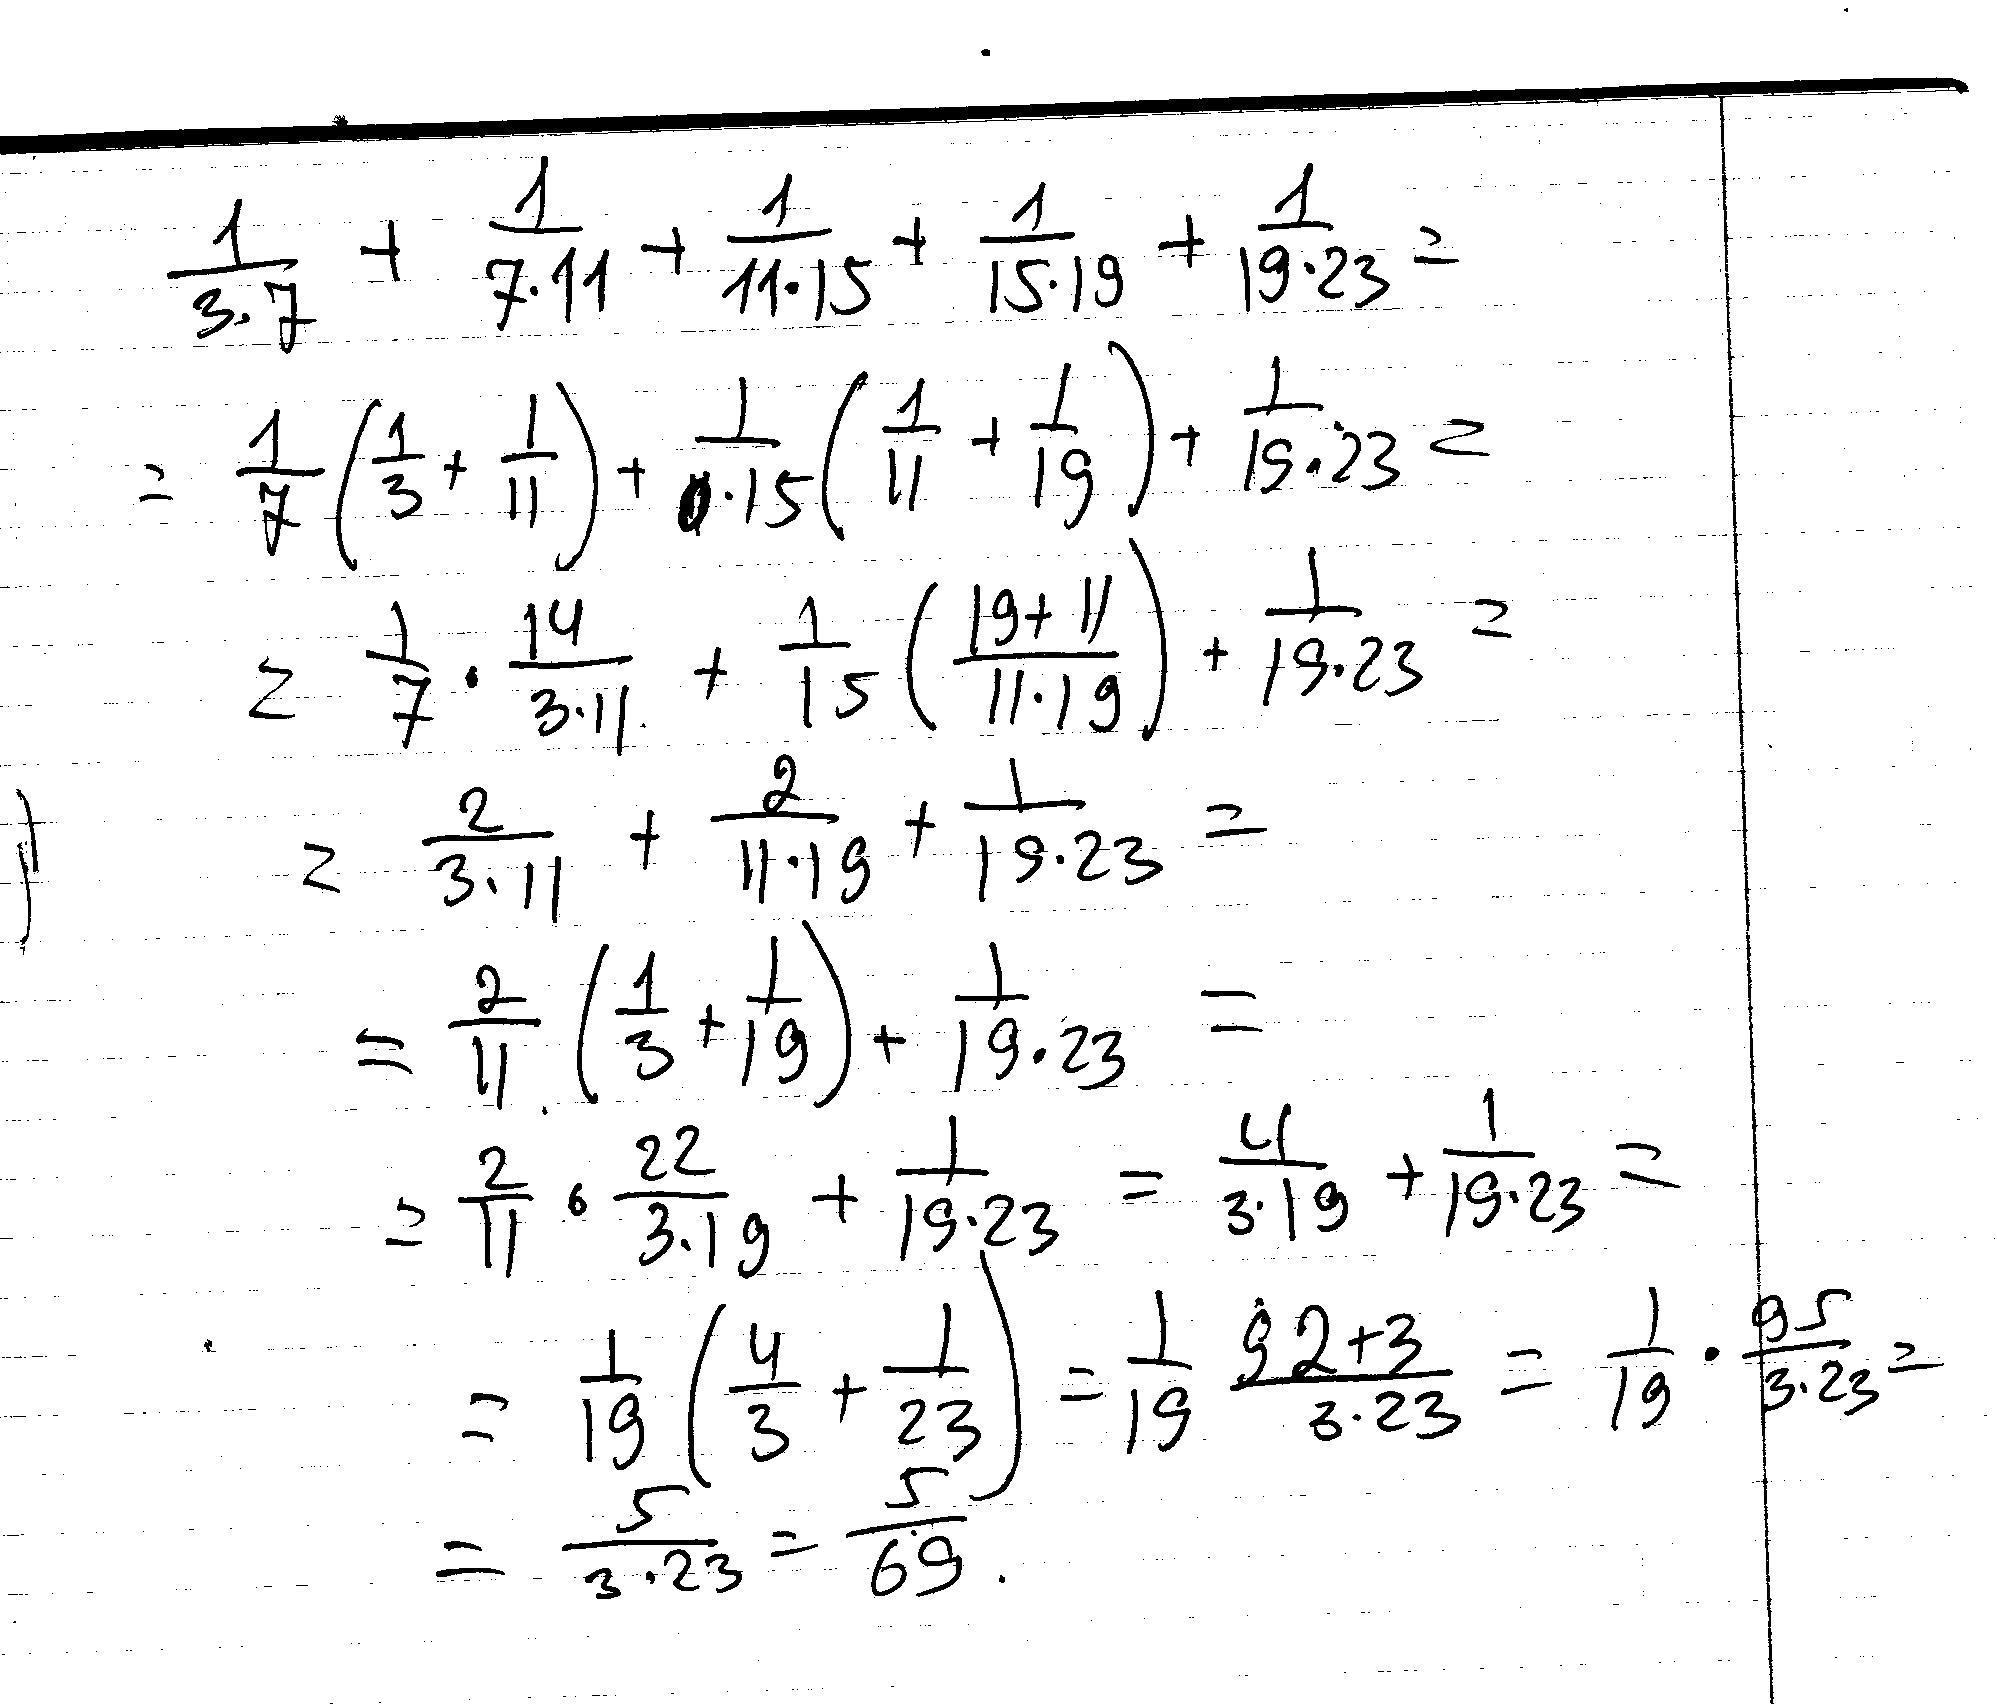 1/(3·7) + 1/(7·11) + 1/(11·15) + 1/(15·19) + 1/(19·23) =
= 1/7 (1/3 + 1/11) + 1/(·15) (1/11 + 1/19) + 1/(19·23) =
= 1/7 · 14/(3·11) + 1/15 ((19+11)/(11·19)) + 1/(19·23) =
= 2/(3·11) + 2/(11·19) + 1/(19·23) =
= 2/11 (1/3 + 1/19) + 1/(19·23) =
= 2/11 · 22/(3·19) + 1/(19·23) = 4/(3·19) + 1/(19·23) =
= 1/19 (4/3 + 1/23) = 1/19 (92+3)/(3·23) = 1/19 · 95/(3·23) =
= 5/(3·23) = 5/69.